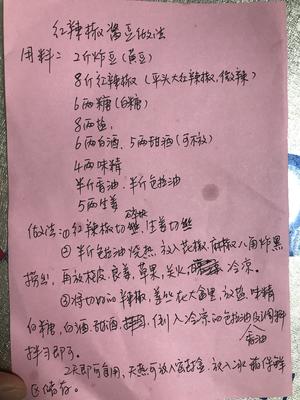 红辣椒酱豆做法
用料：2斤炸豆（黄豆）
8斤红辣椒（平头大红辣椒，微辣）
6两糖（白糖）
8两盐.
6两白酒、5两甜酒（可不放）
4两味精
半斤香油、半斤色拉油
5两生姜
做法：①红辣椒切 生姜切丝
②半斤色拉油烧热，放入花椒、麻椒、八角炸黑
捞出，再放桂皮、良姜、草果，关火 冷凉.
③将切好的辣椒、姜丝在大盆里，放盐、味精
白糖，白酒、甜酒、 倒入冷凉的色拉油及调料
香油
拌匀即可.
2天即可食用，天热可放入容器，放入冰箱保鲜
区储存.